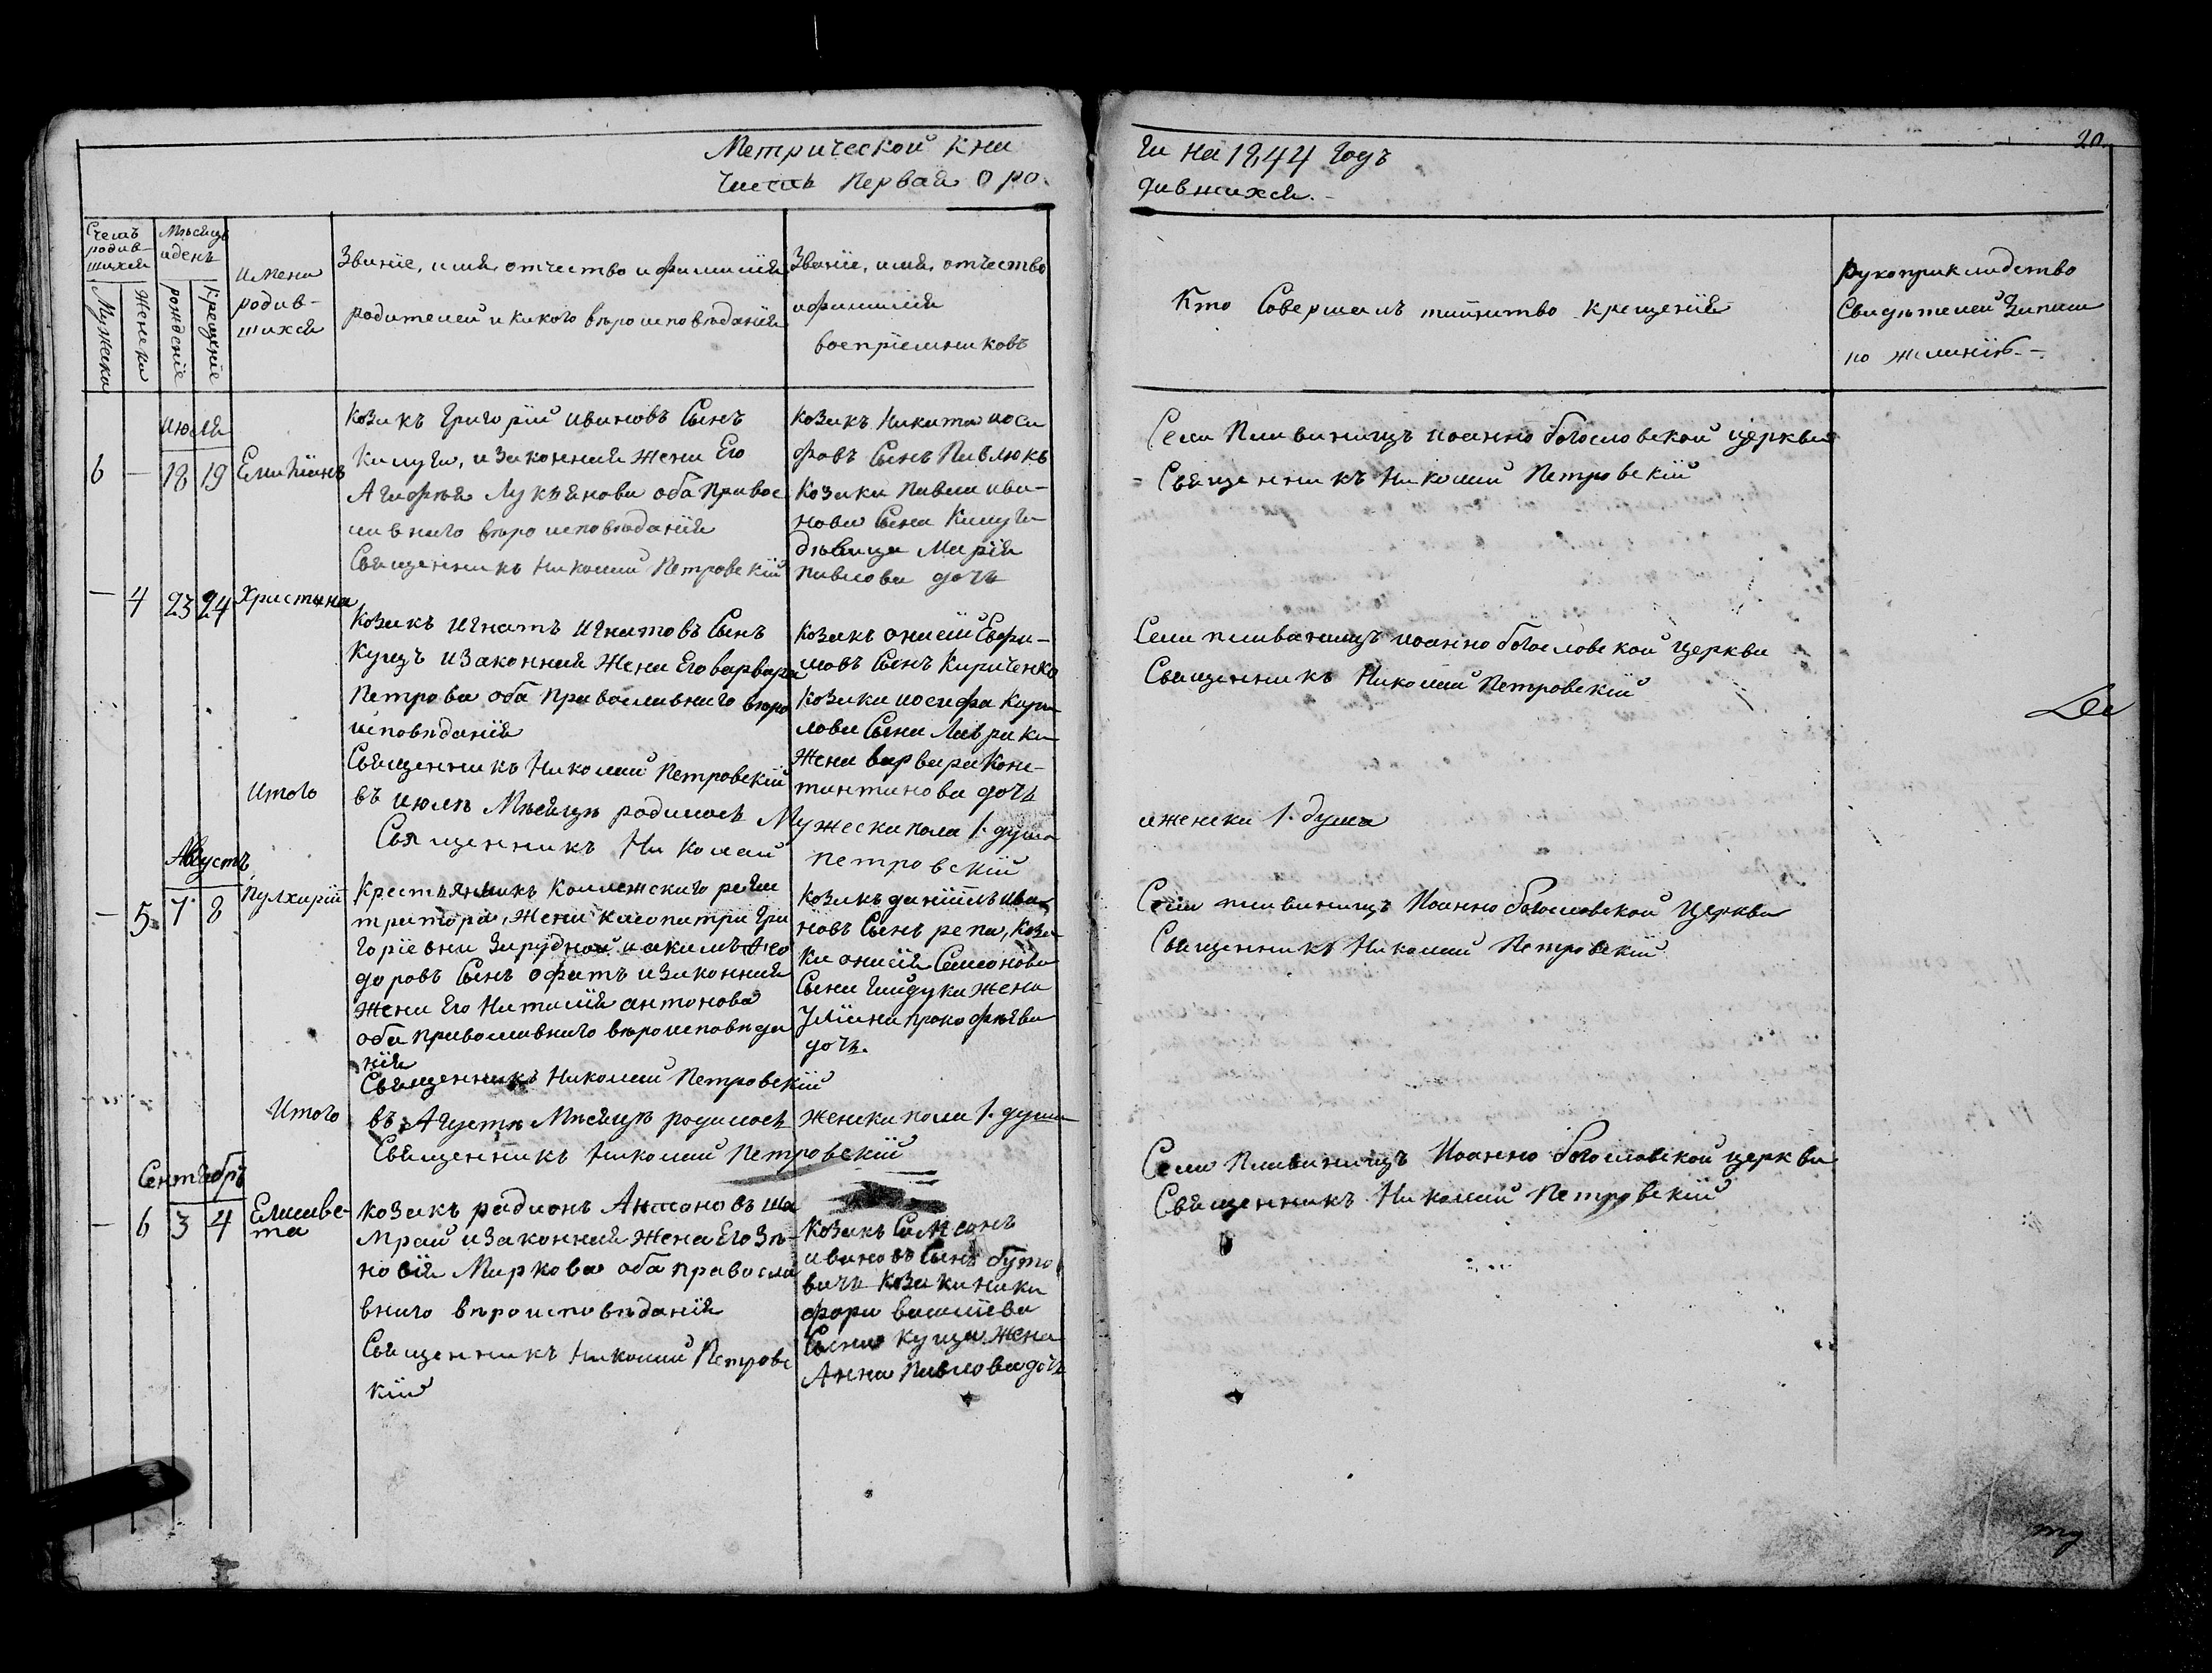 Метрической кни
Часть первая о ро
ги на 1844 годъ
дившихся.
20.
Счетъ родив-
шихся
Мужеска
Женска
Мѣсяцъ
и день
рожденіе
Крещеніе
имена
родив-
шихся
Званіе, имя, отчество и фамилія
родителей и какого вѣроисповѣданія
Званіе, имя, отчество
и фамилія
воспріемниковъ
Кто совершалъ таинство крещенія
рукоприкладство
Свидѣтелей Записи
по желанію
июля
6 — 18 19 Емиліанъ
Козакъ Григорій ивановъ Сынъ
Калуга, и Законная жена Его
Агафья Лукьянова оба Правос
лавнаго вѣроисповѣданія
Священникъ Николай Петровскій
Козакъ Никита иоси
фовъ Сынъ Павлюкъ
Козака Павла ива-
нова Сына Калуги
дѣвица Марія
Павлова дочь
Села Плаваницъ иоанно богословской церкви
Священникъ Николай Петровскій
— 4 23 24 Христина
Козакъ игнатъ игнатовъ Сынъ
Куцъ и Законная Жена Его варвара
Петрова оба Православнаго вѣро
исповѣданія
Священникъ Николай Петровскій
Козакъ онисій Евфи-
мовъ Сынъ Кириченко
Козака иосифа Кири-
лова Сына Лаврика
Жена варвара Конс-
тантинова дочь
Села плаваницъ иоанно богословской церкви
Священникъ Николай Петровскій
Итого
въ июлѣ Мѣсяцѣ родилось Мужеска пола 1. душа
и женска 1. душа
Священникъ Николай Петровскій
Августъ
— 5 7 8 Пулхирія
Крестьянинъ Коллежскаго реги
тратора, Жены Клеопатри Гри
горіевни Зарудной иакимъ Фео
доровъ Сынъ офатъ и Законная
Жена Его Наталія антонова
оба православнаго вѣроисповѣда
нія
Священникъ Николай Петровскій
Козакъ даніилъ ива
новъ Сынъ репа, Коза-
ка онисія Семонова
Сына Гайдука жена
Уліана прокофьева
дочь.
Села плаваницъ Иоанно богословской Церкви
Священникъ Николай Петровскій
Итого
въ Августѣ Мѣсяцѣ родилось женска пола 1. душа
Священникъ Николай Петровскій
Сентябрь
— 6 3 4 Елисаве-
та
Козакъ радионъ Антоновъ Ша
мрай и Законная Жена Его Зѣ-
новія Маркова оба правосла
внаго вѣроисповѣданія
Священникъ Николай Петровс
кій
Козакъ Симеонъ
ивановъ Сынъ буто
вичъ Козака ники
фора василіева
Сына куца жена
Анна Павлова дочь
Села Плаваницъ Иоанно богословской церкви
Священникъ Николай Петровскій